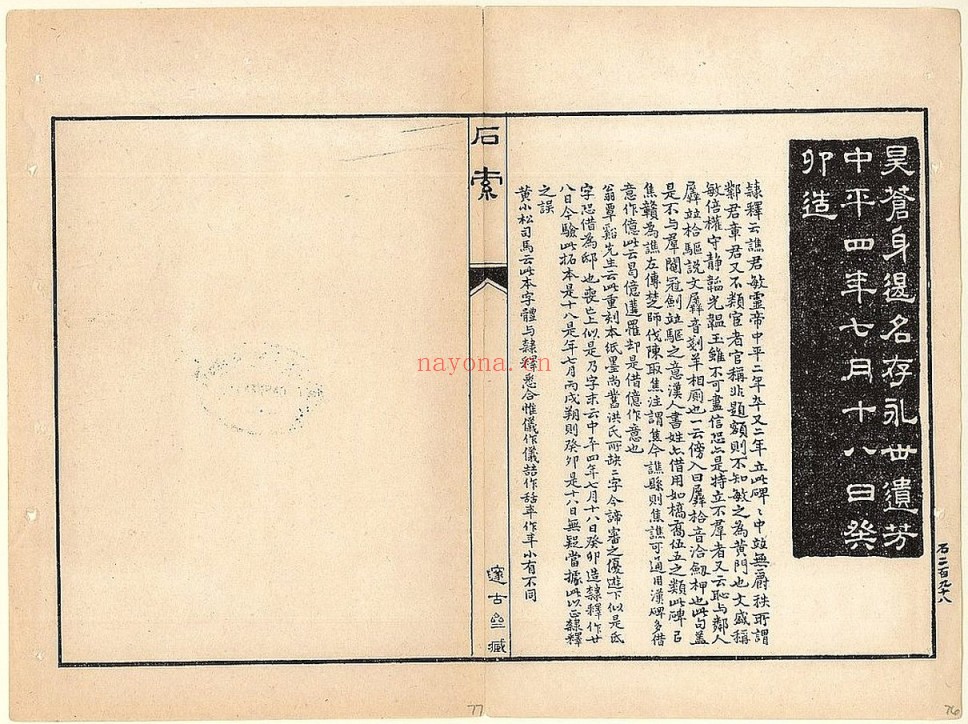 昊蒼身遏名存永世遺芳
中平四年七月十八日癸
卯造
石二百九十八
隸釋云譙君敏靈帝中平二年卒又二年立此碑〻中竝無爵秩所謂
鄰君章君又不類宦者官稱非題額則不知敏之為黃門也文盛稱
敏倍權守静韜光韞玉雖不可盡信恐亦是特立不羣者又云恥与鄰人
羼竝拾驅說文羼音剗羊相厠也一云傍入曰羼拾音洽劒柙也此句蓋
是不与羣閹冠劍竝驅之意漢人書姓亦借用如橋喬伍五之類此碑㠯
焦贛為譙左傳楚師伐陳取焦注謂焦今譙縣則焦譙可通用漢碑多借
意作億此云曷億遘罹却是借億作意也
翁覃谿先生云此重刻本紙墨尚舊洪氏所缺二字今諦審之優遊下似是氐
字恐借為邸也喪亡上似是乃字末云中平四年七月十八日癸卯造隸釋作廿
八日今驗此拓本是十八是年七月丙戌朔則癸卯是十八日無疑當據此以正隸釋
之誤
黃小松司馬云此本字體与隸釋悉合惟儀作儀喆作嚞年作秊小有不同
石索
邃古齋藏
nayona.cn
77
76